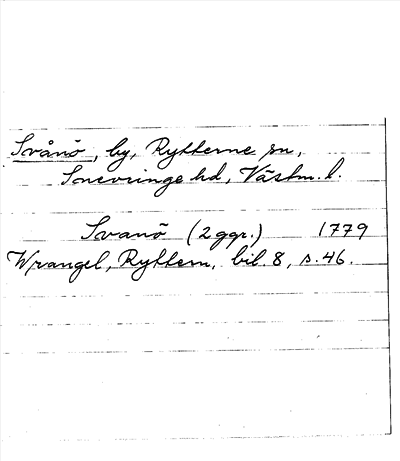 Svånö, by, Rytterne sn,
Snevringe hd, Västm. l.
Svanö (2 ggr.) 1779
Wrangel, Ryttern, bil. 8, s. 46.